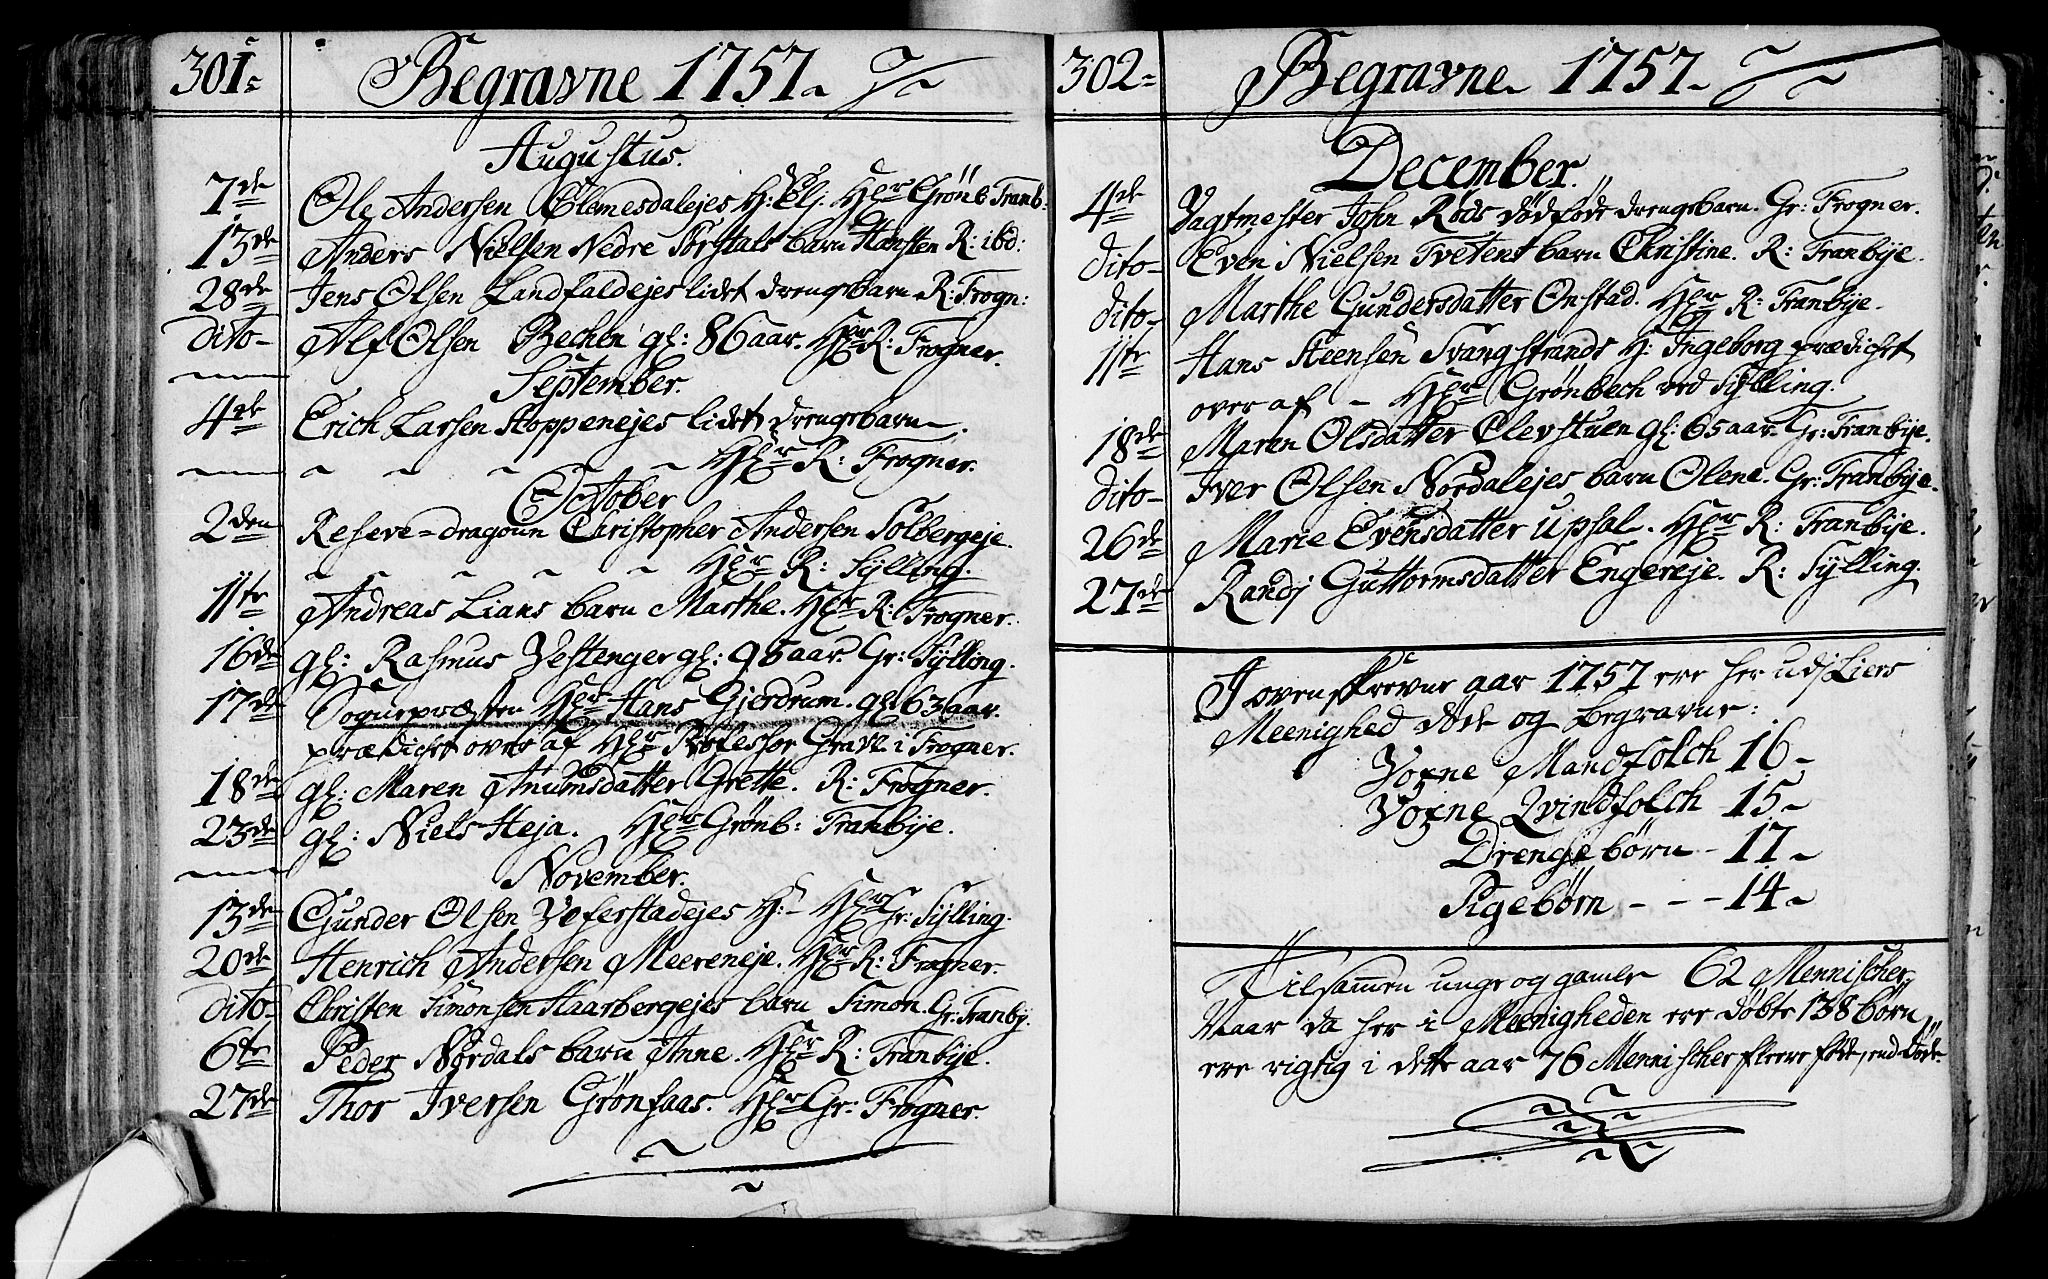 301
Begravne 1757
Augustus.
7de Ole Andersen Clemesdalejes H: Elj. Hr Grönb Tranb:
13de Anders Nielsen Nedre Sørstals barn Hansten R: ibd:
28de Jens Olsen Landfaldejes lidet drengebarn R: Frogn:
dito Alf Olsen Bechen gl: 86 aar. Hr R: Frogner.
September.
4de Erich Larsen Stoppenejes lidet drengebarn.
Hr R: Frogner.
October
2den Reserve=dragoun Christopher Andersen Solbergeje.
Hr R: Sylling.
11te Andreas Lians barn Marthe. Hr R: Frogner.
16de gl: Rasmus Vestenger gl: 95 aar. Gr: Sylling.
17de Sognepræsten Hr Hans Gjerdrum. gl 63 aar.
prædichet over af Hr Professor Grave i Frogner.
18de gl: Maren Amunsdatter Grette. R: Frogner.
23de gl: Niels Heja. Hr Grönb: Tranbÿe.
November.
13de Gunder Olsen Voferstadejes H: Hr Gr: Sylling.
20de Henrich Andersen Meereneje. Hr R: Frogner.
dito Christen Simonsen Haarbergejes barn Simon. Gr: Tranby.
6te Peder Nordals barn Anne. Hr R: Tranbÿe.
27de Thor Iversen Grønsaas. Hr Gr: Frogner.
302
Begravne 1757
December.
4de Vagtmester John Røds dødføde drengebarn. Gr: Frogner.
dito Even Nielsen Tvetens barn Christine. R: Tranbÿe.
dito Marthe Gundersdatter Onstad. Hr R: Tranbÿe.
11te Hans Steensen Svangstrands H: Ingeborg prædichet
over af Hr Grönbech ved Sylling.
18de Maren Olsdatter Elevstuen gl: 65 aar. Gr: Tranbÿe.
dito Iver Olsen Nordalejes barn Olene. Gr: Tranbÿe.
26de Marie Evensdatter Upsal. Hr R: Tranbÿe.
27de Randj Guttormsdatter Engereje. R: Sylling.
I ovenskrevne aar 1757 ere her udj Liers
Meenighed døde og begravne:
Voxne Mandfolch 16
Voxne Qvindfolch 15
Drengebørn 17
Pigebørn - - - 14
Tilsammen unge og gamle 62 Mennischer,
Maar da her i Meenigheden ere døbte 138 børn
ere rigtig i dette aar 76 Mennischer fleere føde, end døde